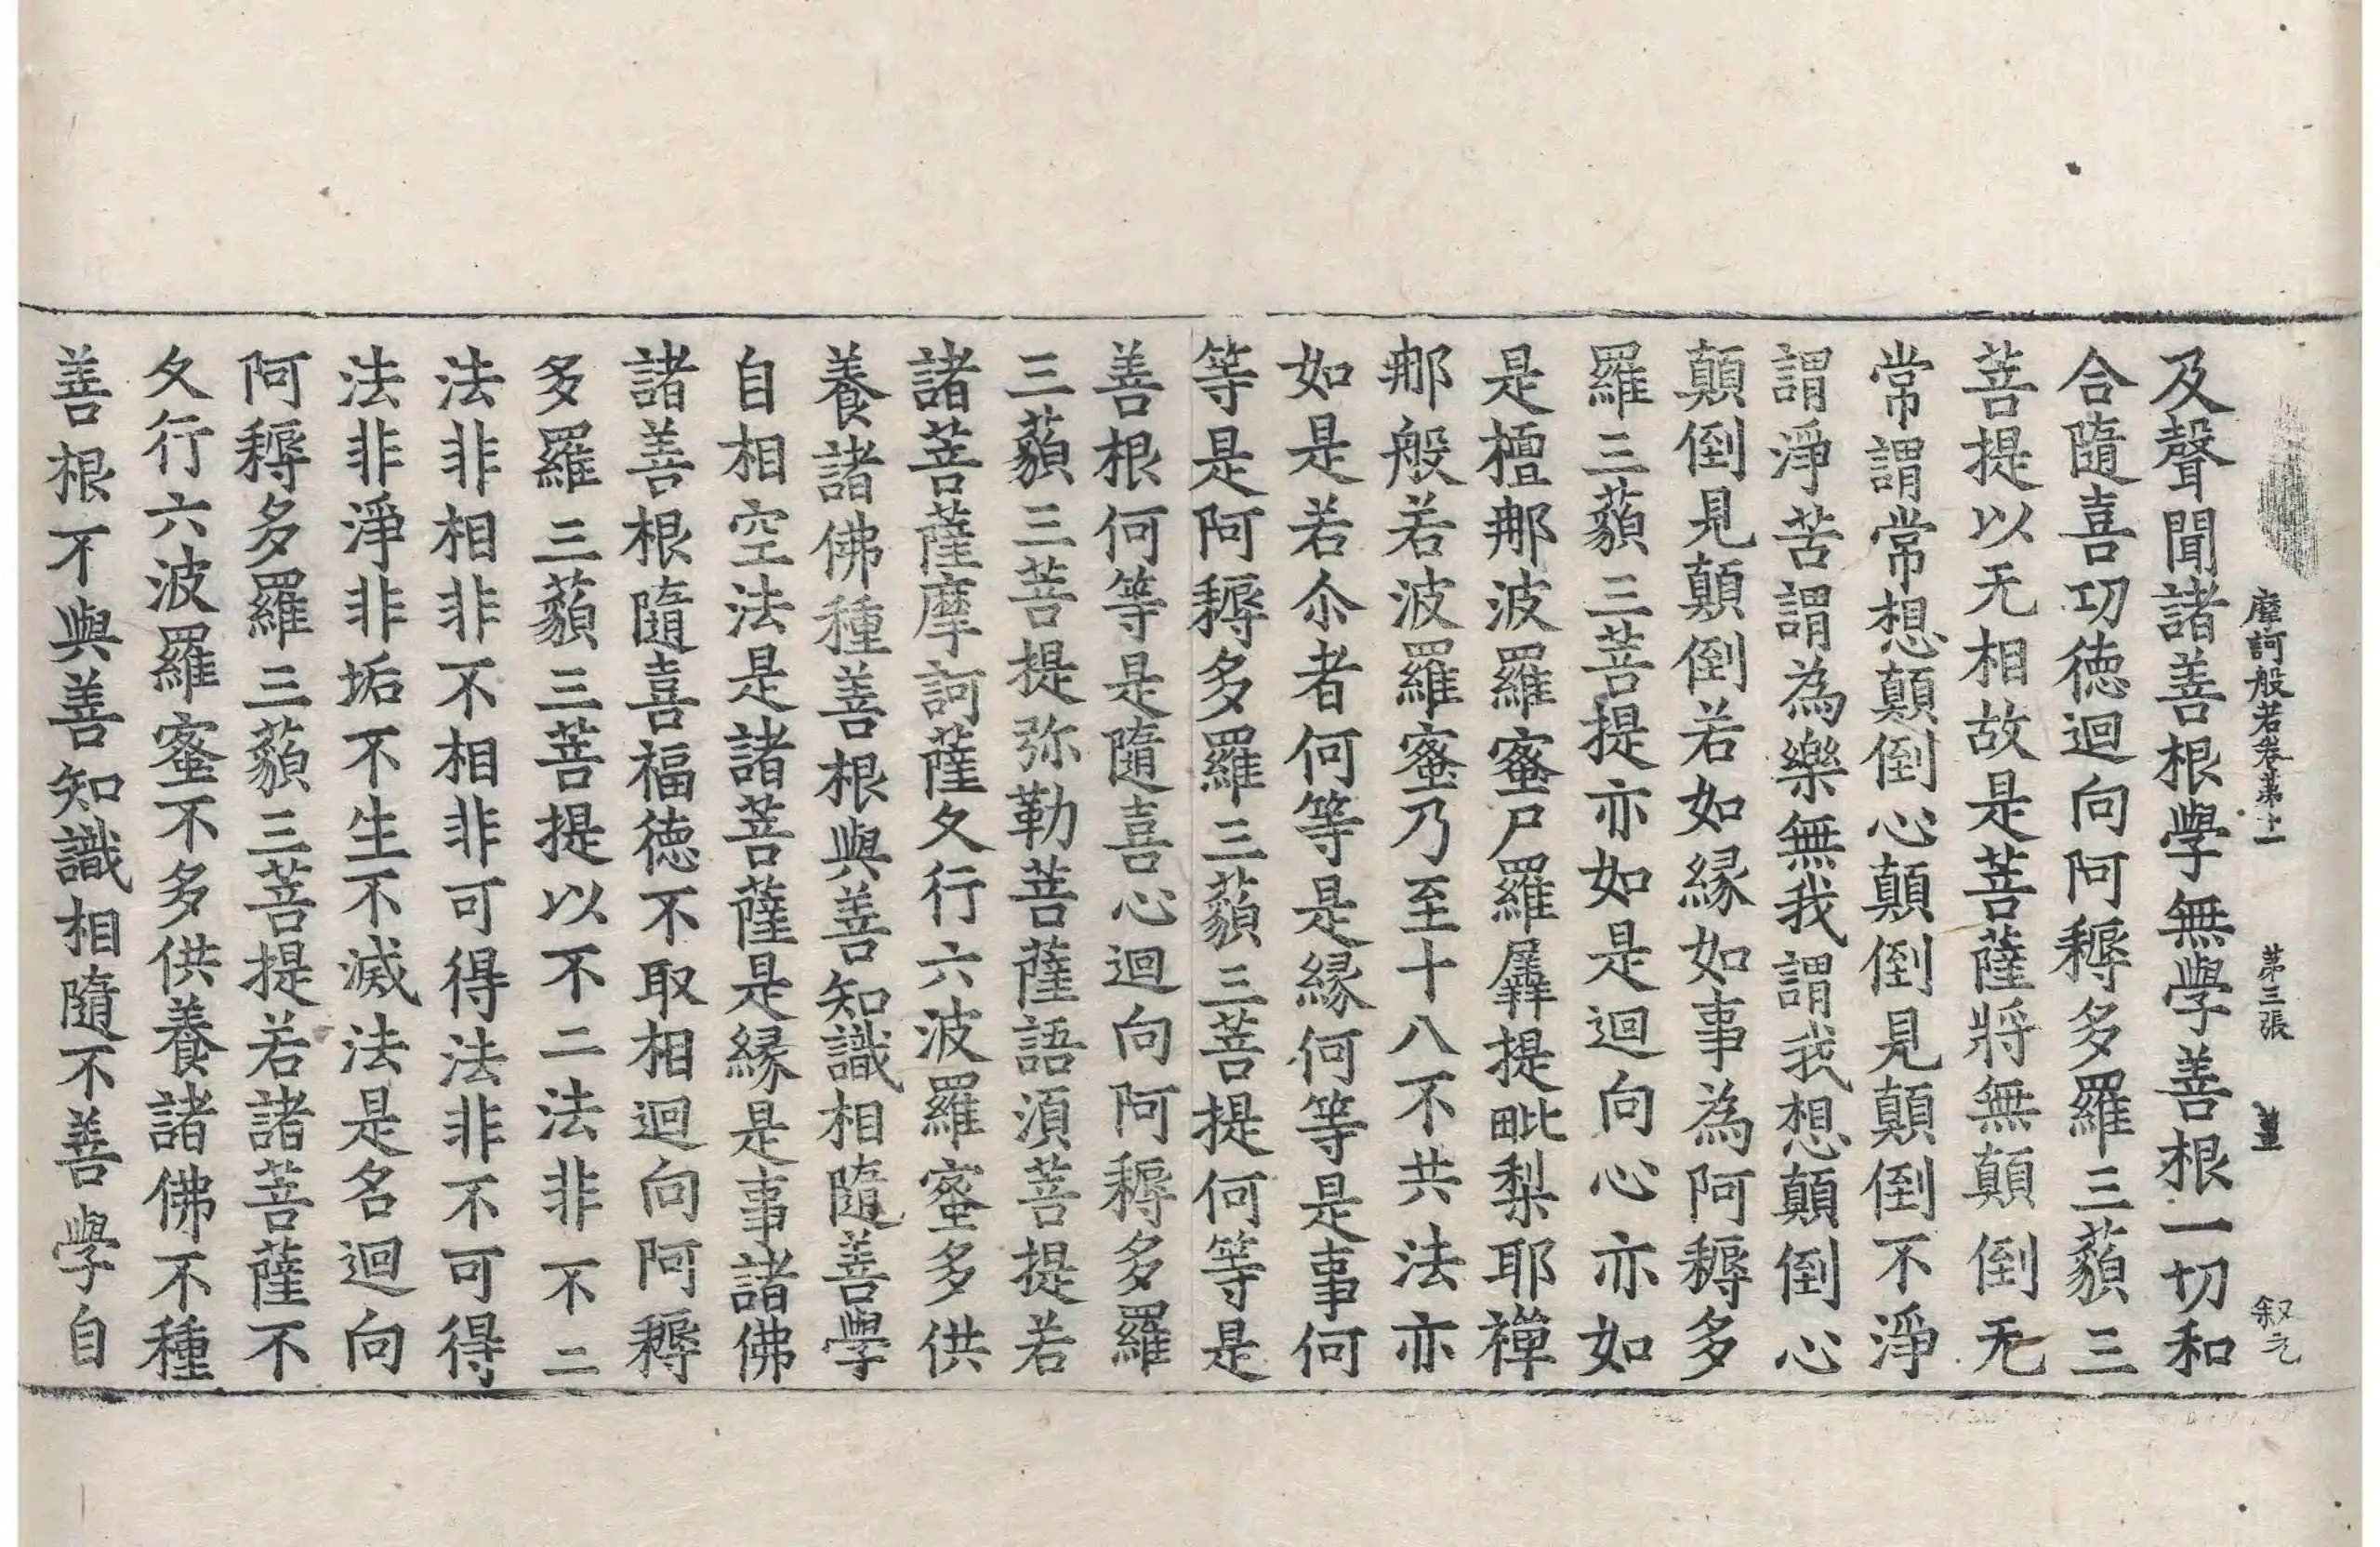 摩訶般若卷苐十一 苐三張 薑 叙元
及聲聞諸善根學無學善根一切和
合隨喜功徳迴向阿耨多羅三藐三
菩提以无相故是菩薩將無顛倒无
常謂常想顛倒心顛倒見顛倒不淨
謂淨苦謂為樂無我謂我想顛倒心
顛倒見顛倒若如縁如事為阿耨多
羅三藐三菩提亦如是迴向心亦如
是檀那波羅蜜尸羅羼提毗梨耶禪
那般若波羅蜜乃至十八不共法亦
如是若尒者何等是縁何等是事何
等是阿耨多羅三藐三菩提何等是
善根何等是隨喜心迴向阿耨多羅
三藐三菩提弥勒菩薩語湏菩提若
諸菩薩摩訶薩久行六波羅蜜多供
養諸佛種善根與善知識相隨善學
自相空法是諸菩薩是縁是事諸佛
諸善根隨喜福徳不取相迴向阿耨
多羅三藐三菩提以不二法非不二
法非相非不相非可得法非不可得
法非淨非垢不生不滅法是名迴向
阿耨多羅三藐三菩提若諸菩薩不
久行六波羅蜜不多供養諸佛不種
善根不與善知識相隨不善學自